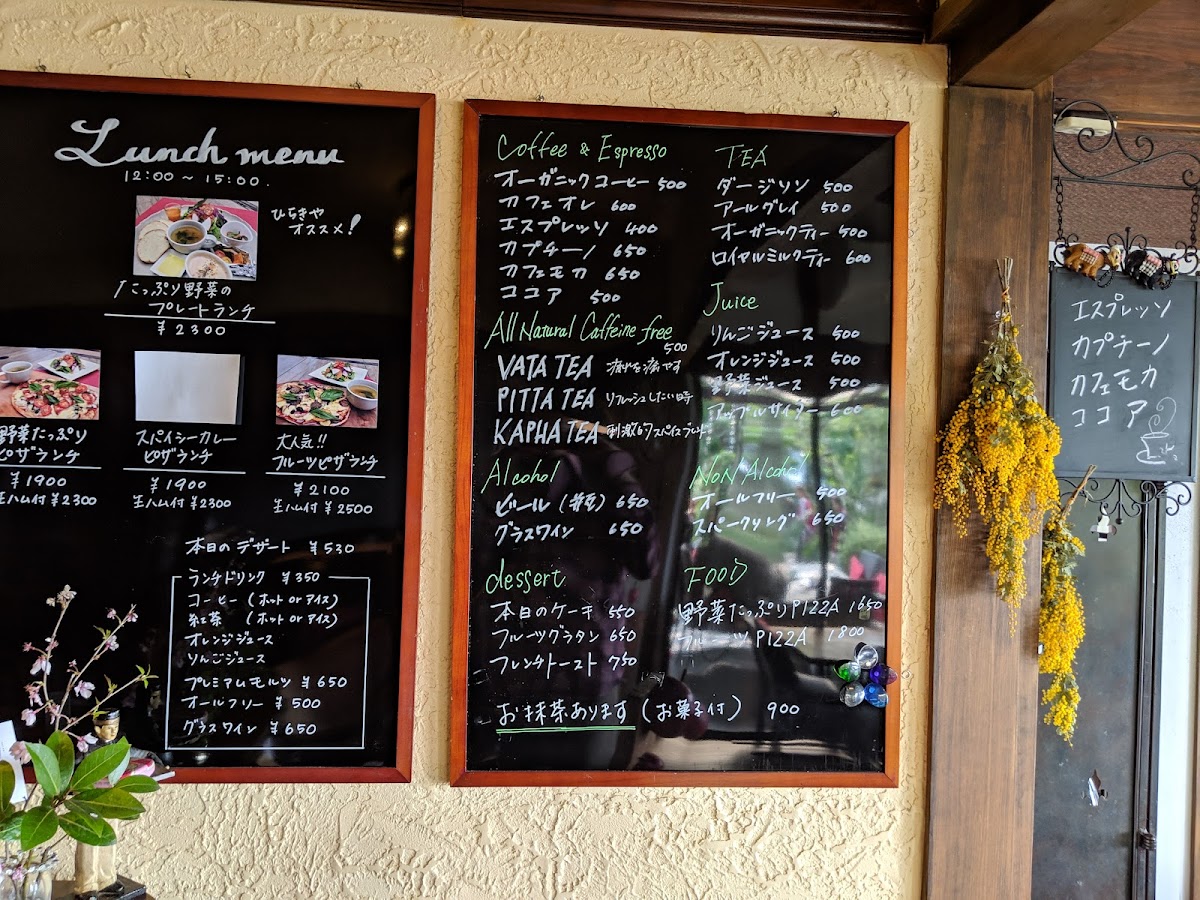 Lunch menu
12:00 ~ 15:00.
ひらきや
オススメ!
たっぷり野菜の
プレートランチ
¥2300
野菜たっぷり
ピザランチ
¥1900
生ハム付¥2300
スパイシーカレー
ピザランチ
¥1900
生ハム付¥2300
大人気!!
フルーツピザランチ
¥2100
生ハム付¥2500
本日のデザート ¥530
ランチドリンク ¥350
コーヒー (ホット or アイス)
紅茶 (ホット or アイス)
オレンジジュース
りんごジュース
プレミアムモルツ ¥650
オールフリー ¥500
グラスワイン ¥650
Coffee & Espresso
オーガニックコーヒー 500
カフェオレ 600
エスプレッソ 400
カプチーノ 650
カフェモカ 650
ココア 500
All Natural Caffeine free
500
VATA TEA 疲れを癒やす
PITTA TEA リフレッシュしたい時
KAPHA TEA 刺激的スパイスブレンド
Alcohol
ビール (井) 650
グラスワイン 650
dessert
本日のケーキ 550
フルーツグラタン 650
フレンチトースト 750
お抹茶あります (お菓子付) 900
TEA
ダージリン 500
アールグレイ 500
オーガニックティー 500
ロイヤルミルクティー 600
Juice
りんごジュース 500
オレンジジュース 500
野菜ジュース 500
アップルサイダー 600
Non Alcohol
オールフリー 500
スパークリング 650
FOOD
野菜たっぷりPIZZA 1650
フルーツPIZZA 1800
エスプレッソ
カプチーノ
カフェモカ
ココア